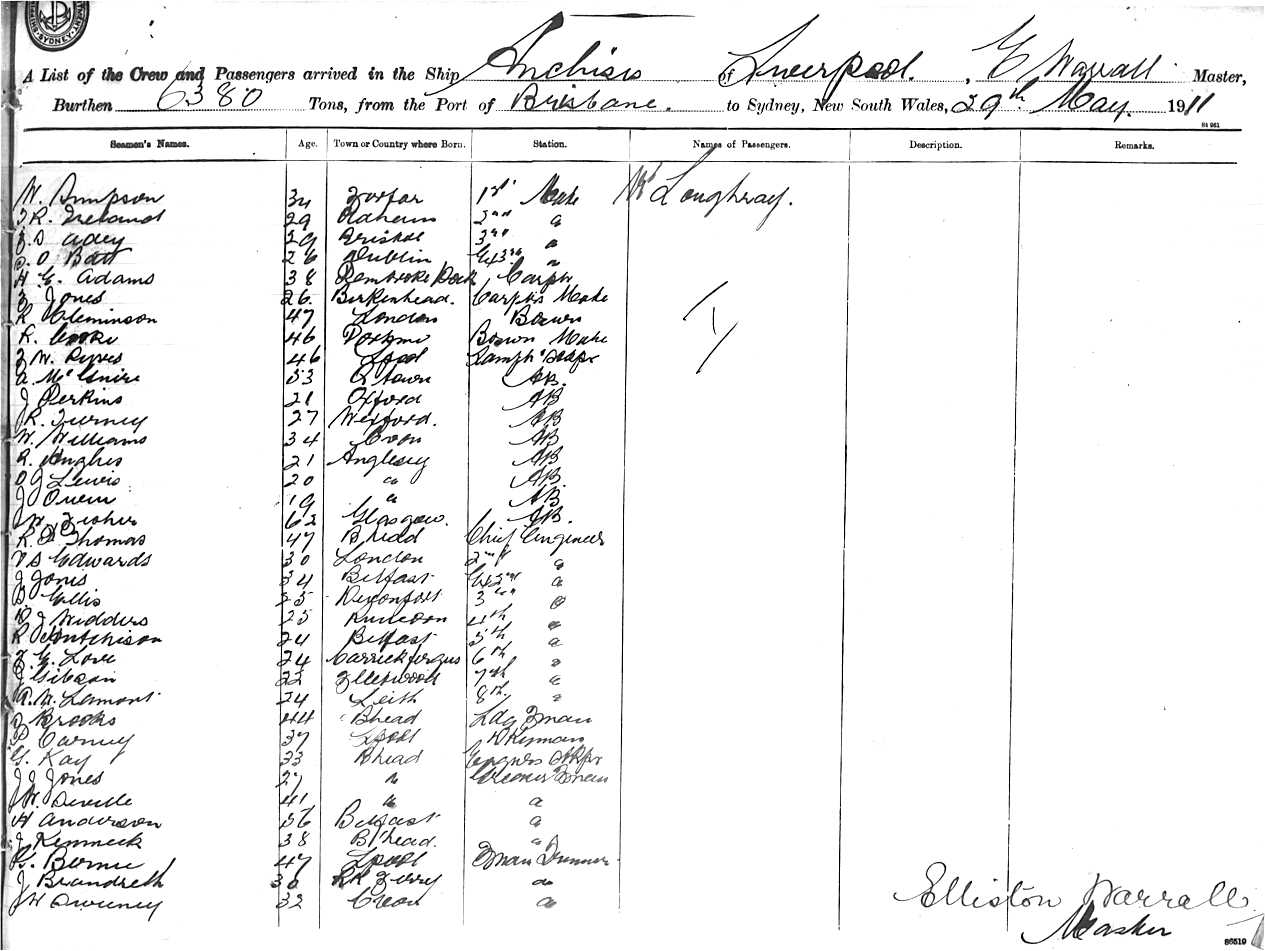 SYDNEY
A List of the Crew and Passengers arrived in the Ship Anchises of Liverpool, E Warrall Master,
Burthen 6380 Tons, from the Port of Brisbane. to Sydney, New South Wales, 29th May 1911
84 961
Seamen's Names. Age. Town or Country where Born. Station. Names of Passengers. Description. Remarks.
W. Simpson 34 Forfar 1st Mate Loughray.
F R. Ireland 29 2nd "
J. S Adey 29 Bristol 3rd "
O Batt 26 Dublin Ex 3rd "
H E. Adams 38 Pembroke Dock Carptr
Jones 26. Birkenhead. Carptrs Mate
R Cleminson 47 London Bosun
R. Cooke 46 Bosun Mate
J W. Ryves 46 Lpool Lamp
A. McGuire 53 Q town AB.
J Perkins 21 Oxford AB
R. Furney 27 Wexford. AB
W. Williams 34 AB
R. Hughes 21 Anglesey AB
O J Lewis 20 " AB.
J Owen 19 " AB
J W. Fisher 62 Glasgow. AB.
R. Thomas 47 B head Chief Engineer
Edwards 30 London 2nd "
J Jones 34 Belfast Ex 2nd "
Ellis 25 Devonport 3rd "
J Widders 25 4th "
R Hutchison 24 Belfast 5th "
E. Love 24 Carrickfergus 6th "
J Gibson 22 Fleetwood 7th "
R. W. Lamont 24 Leith 8th. "
Brooks 44 Bhead Ldg Fman
Carney 37 Lpool Dkyman
G. Kay 33 Bhead Engnrs Stkpr
J J Jones 27 " Greaser Fman
J W. Deville 41 " "
H Anderson 36 Belfast "
J Kenneck 38 B'head. "
Bernie 47 Lpool Fman Trimmer
J Brandreth 36 Rk Ferry "
J H Sweeney 32 "
Elliston Warrall
Master
86519